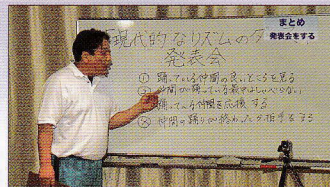 まとめ
発表会をする
現代的なリズムのダ
発表会
① 踊っている仲間の良いところを見る
② 仲間が踊っている最中はしゃべらない
踊っている仲間を応援する
仲間の踊りが終わったら拍手をする